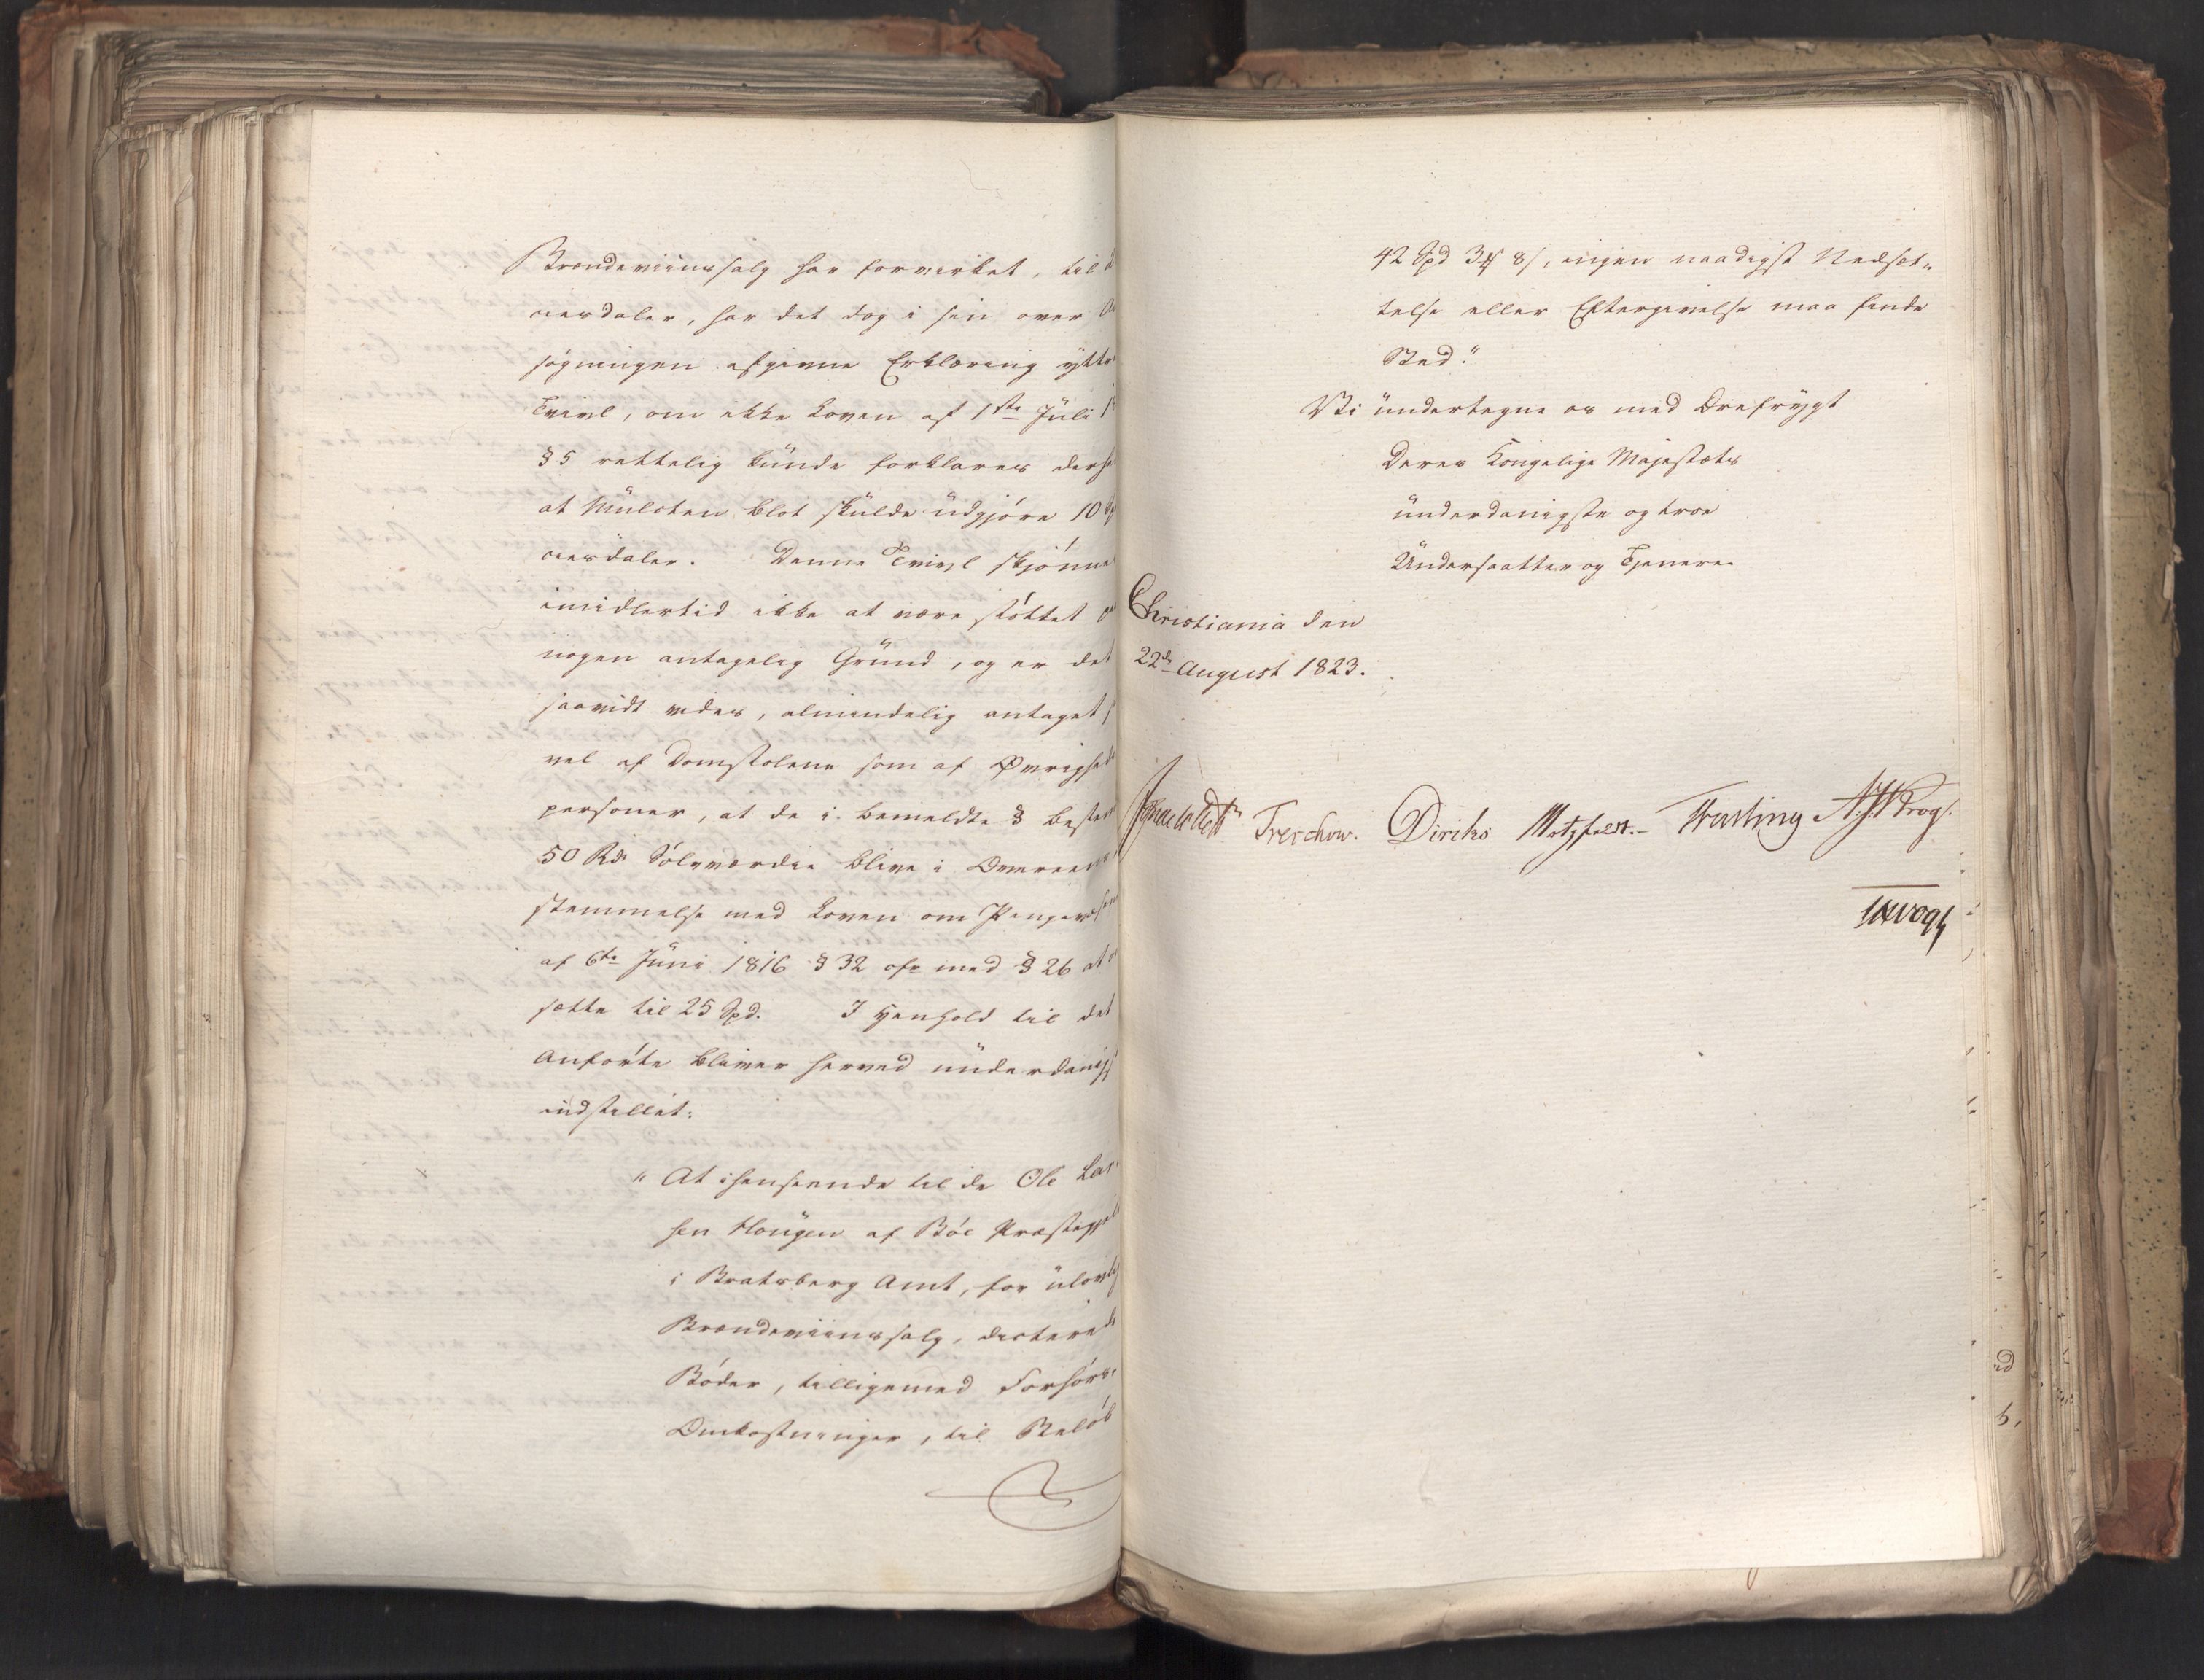 Brændeviinssalg har forvirket, til
ciesdaler, har det dog i sin over
søgningen afgivne Erklæring yttr
Tvivl, om ikke Loven af 1ste Juli
§ 5 rettelig kunde forklares derh
at Mulcten blot skulde udgjøre 10
ciesdaler. Denne Tvivl skjønne
imidlertid ikke at være støttet
nogen antagelig Grund, og er det
saavidt vides, almindelig antaget
vel af Domstolene som af Øvrigheds
personer, at de i bemeldte § bestem
50 Rd Sølvværdie blive i Overeens
stemmelse med Loven om Pengevæsen
af 6te Juni 1816 § 32 cfr med § 26 at
sætte til 25 Spd. I Henhold til det
Anførte bliver herved underdanigst
indstillet:
"At ihenseende til de Ole Lar-
sen Haugen af Bøe Præstegjeld
i Bratsberg Amt, for ulovlig
Brændeviinssalg, dicterede
Bøder, tilligemed Forhørs-
Omkostninger, til Beløb
42 Spd 3 ₰ 8 s, ingen naadigst Nedsæt-
telse eller Eftergivelse maa finde
Sted."
Vi undertegne os med Ærefrygt
Deres Kongelige Majestæts
underdanigste og troe
Undersaatter og Tjenere.
Christiania den
22de August 1823.
Treschow. Diriks Motzfeldt.- Fasting